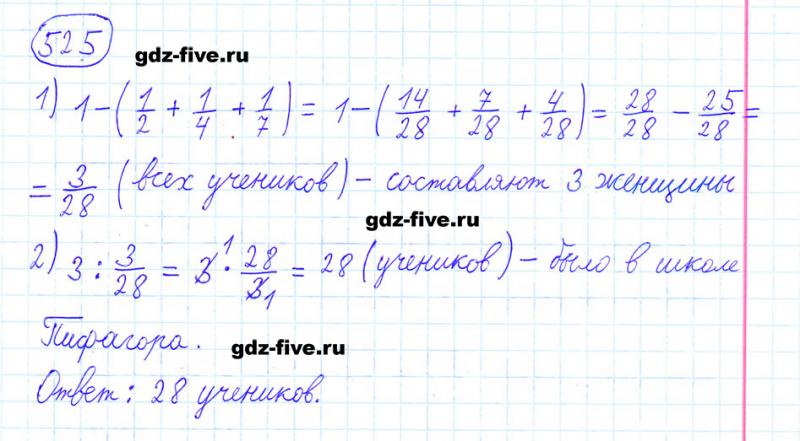 525
gdz-five.ru
1) 1 − (1/2 + 1/4 + 1/7) = 1 − (14/28 + 7/28 + 4/28) = 28/28 − 25/28 =
= 3/28 (всех учеников) − составляют 3 женщины
gdz-five.ru
2) 3 : 3/28 = 3 1 · 28/3 1 = 28 (учеников) − было в школе
Пифагора.
gdz-five.ru
Ответ: 28 учеников.